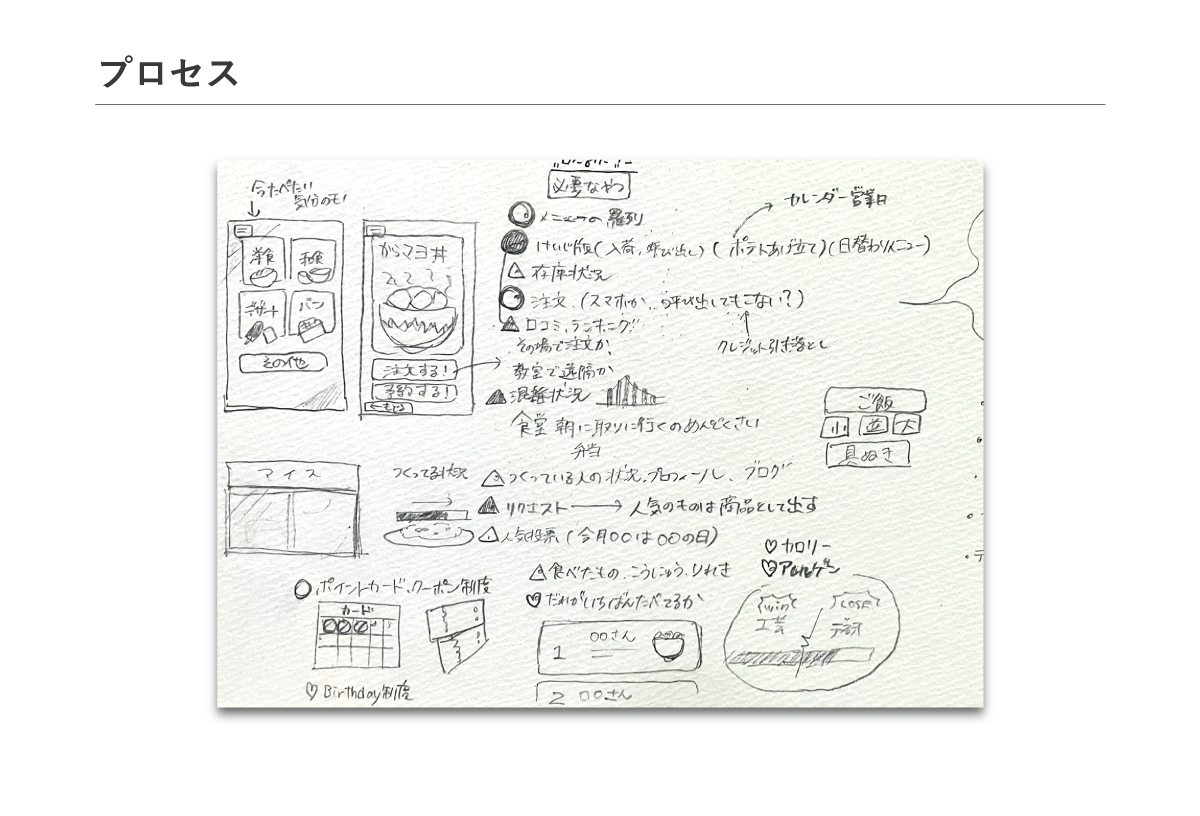 プロセス
必要なやつ
今たべたい
気分のモノ
洋食
和食
デザート
パン
その他
からマヨ丼
注文する!
予約する!
←もどる
メニューの羅列
けいじ版(入荷、呼び出し)(ポテトあげ立て)(日替わりメニュー)
カレンダー営業日
在庫状況
注文(スマホか、呼び出してもこない?)
クレジット引き落とし
口コミ、ランキング!!
その場で注文か、
教室で遠隔か
混雑状況
食堂 朝に取りに行くのめんどくさい
弁当
ご飯
小
並
大
具ぬき
アイス
つくってる状況
つくっている人の状況、プロフィール、ブログ
リクエスト→人気のものは商品として出す
人気投票(今月〇〇は〇〇の日)
食べたもの、こうにゅう、りれき
♡だれがいちばんたべてるか
♡カロリー
♡アレルゲン
ポイントカード、クーポン制度
カード
♡Birthday制度
1
〇〇さん
2
〇〇さん
win
工芸
lose